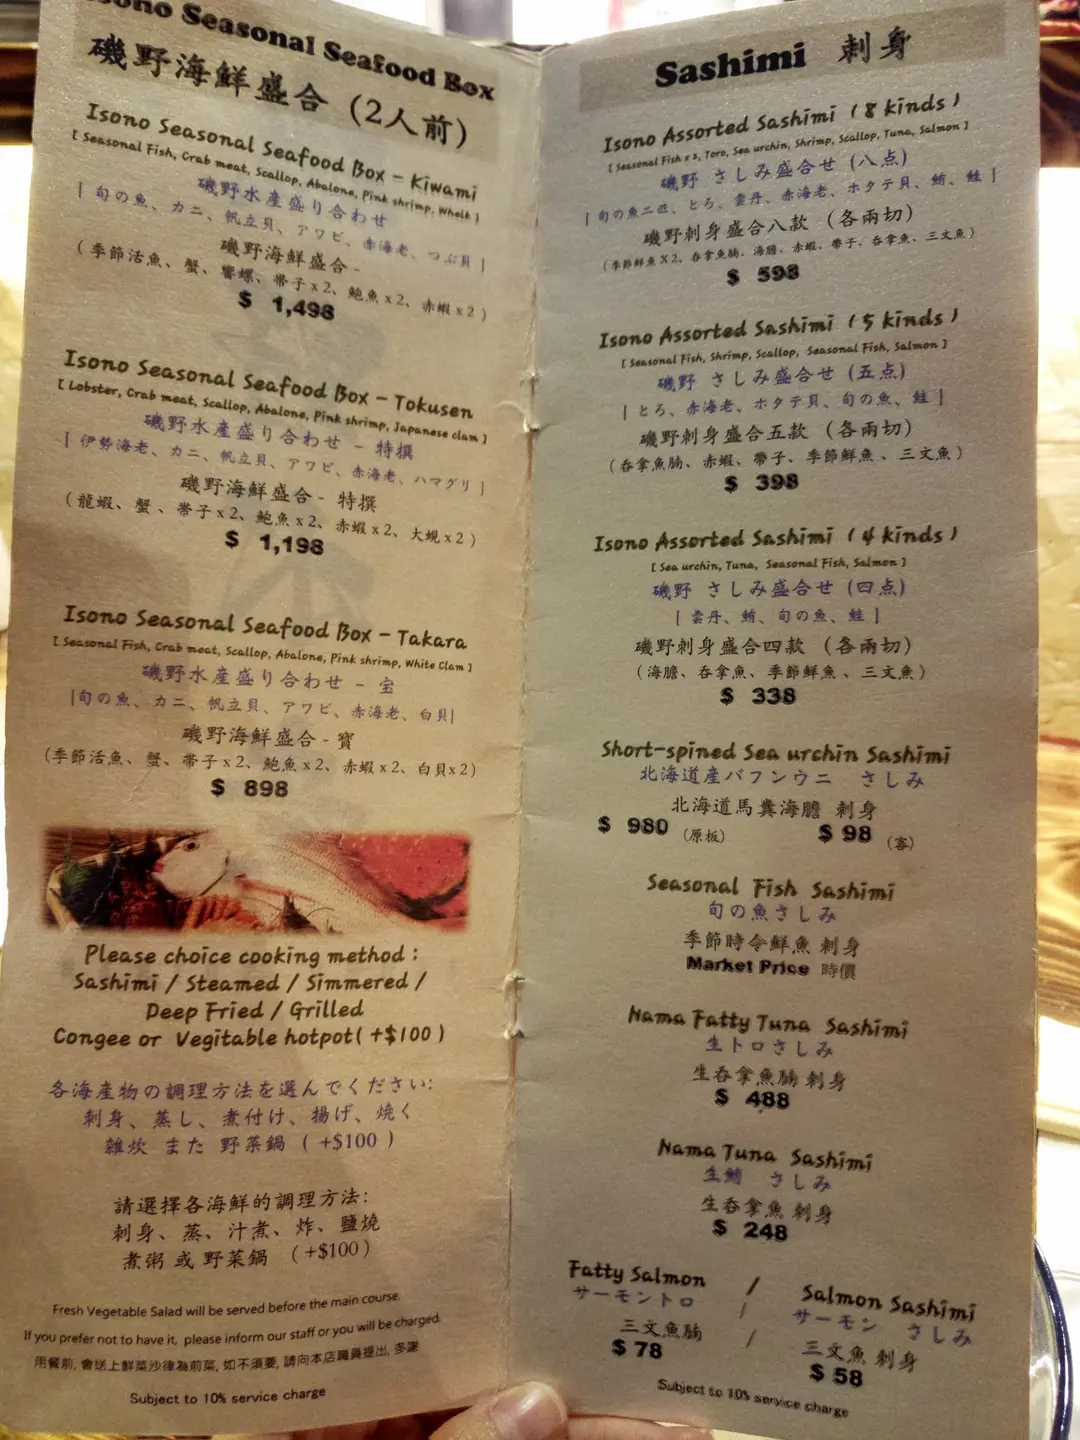 Isono Seasonal Seafood Box
磯野海鮮盛合 (2人前)
Isono Seasonal Seafood Box - Kiwami
[ Seasonal Fish, Crab meat, Scallop, Abalone, Pink shrimp, Whelk ]
磯野水産盛り合わせ
| 旬の魚、カニ、帆立貝、アワビ、赤海老、つぶ貝 |
磯野海鮮盛合 -
(季節活魚、蟹、響螺、帶子x2、鮑魚x2、赤蝦x2)
$ 1,498
Isono Seasonal Seafood Box - Tokusen
[ Lobster, Crab meat, Scallop, Abalone, Pink shrimp, Japanese clam ]
磯野水産盛り合わせ - 特撰
| 伊勢海老、カニ、帆立貝、アワビ、赤海老、ハマグリ |
磯野海鮮盛合 - 特撰
(龍蝦、蟹、帶子x2、鮑魚x2、赤蝦x2、大蜆x2)
$ 1,198
Isono Seasonal Seafood Box - Takara
[ Seasonal Fish, Crab meat, Scallop, Abalone, Pink shrimp, White Clam ]
磯野水産盛り合わせ - 宝
|旬の魚、カニ、帆立貝、アワビ、赤海老、白貝|
磯野海鮮盛合 - 寶
(季節活魚、蟹、帶子x2、鮑魚x2、赤蝦x2、白貝x2)
$ 898
Please choice cooking method :
Sashimi / Steamed / Simmered /
Deep Fried / Grilled
Congee or Vegitable hotpot( +$100 )
各海産物の調理方法を選んでください:
刺身、蒸し、煮付け、揚げ、焼く
雑炊 また 野菜鍋 ( +$100 )
請選擇各海鮮的調理方法:
刺身、蒸、汁煮、炸、鹽燒
煮粥 或 野菜鍋 (+$100)
Fresh Vegetable Salad will be served before the main course.
If you prefer not to have it, please inform our staff or you will be charged.
用餐前, 會送上鮮菜沙律為前菜, 如不須要, 請向本店職員提出, 多謝
Subject to 10% service charge
Sashimi 刺身
Isono Assorted Sashimi ( 8 kinds )
[ Seasonal Fish x 2, Toro, Sea urchin, Shrimp, Scallop, Tuna, Salmon ]
磯野 さしみ盛合せ (八点)
| 旬の魚二匹、とろ、雲丹、赤海老、ホタテ貝、鮪、鮭 |
磯野刺身盛合八款 (各兩切)
(季節鮮魚X2、吞拿魚腩、海膽、赤蝦、帶子、吞拿魚、三文魚)
$ 598
Isono Assorted Sashimi ( 5 kinds )
[ Seasonal Fish, Shrimp, Scallop, Seasonal Fish, Salmon ]
磯野 さしみ盛合せ (五点)
| とろ、赤海老、ホタテ貝、旬の魚、鮭 |
磯野刺身盛合五款 (各兩切)
(吞拿魚腩、赤蝦、帶子、季節鮮魚、三文魚)
$ 398
Isono Assorted Sashimi ( 4 kinds )
[ Sea urchin, Tuna, Seasonal Fish, Salmon ]
磯野 さしみ盛合せ (四点)
| 雲丹、鮪、旬の魚、鮭 |
磯野刺身盛合四款 (各兩切)
(海膽、吞拿魚、季節鮮魚、三文魚)
$ 338
Short-spined Sea urchin Sashimi
北海道産バフンウニ さしみ
北海道馬糞海膽 刺身
$ 980 (原板) $ 98 (客)
Seasonal Fish Sashimi
旬の魚さしみ
季節時令鮮魚 刺身
Market Price 時價
Nama Fatty Tuna Sashimi
生トロさしみ
生吞拿魚腩 刺身
$ 488
Nama Tuna Sashimi
生鮪 さしみ
生吞拿魚 刺身
$ 248
Fatty Salmon / Salmon Sashimi
サーモントロ / サーモン さしみ
三文魚腩 / 三文魚 刺身
$ 78 $ 58
Subject to 10% service charge